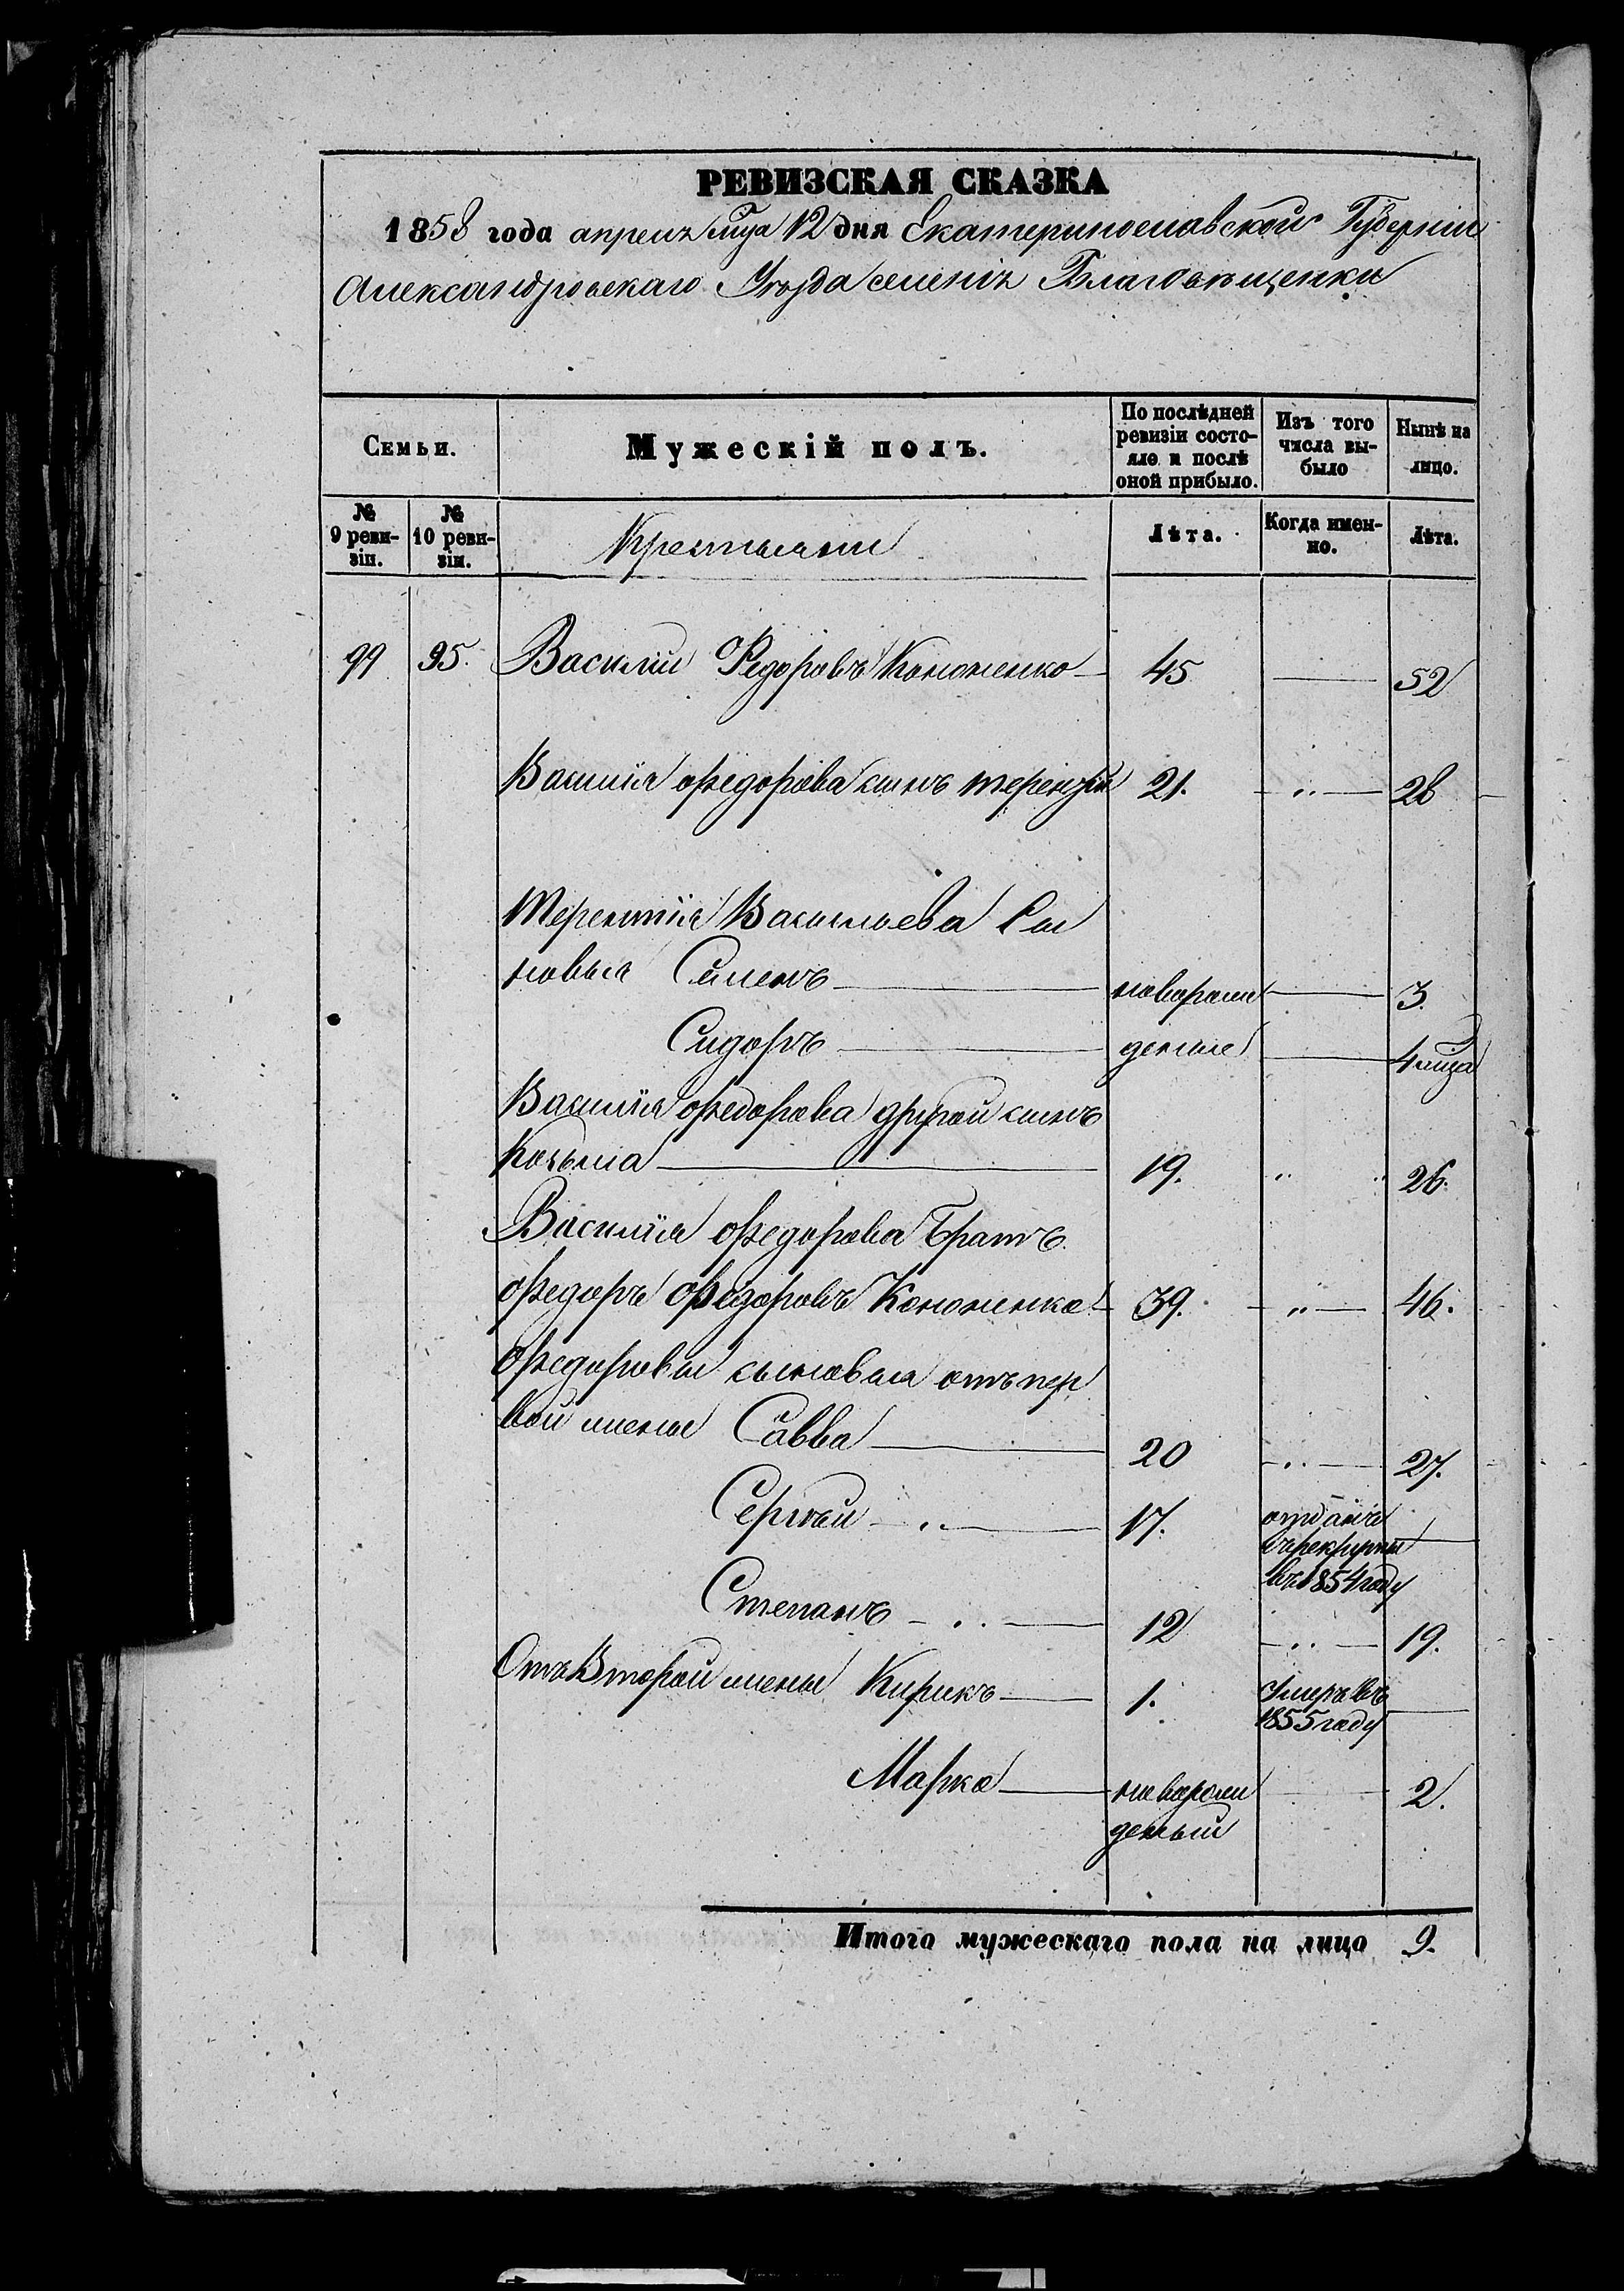 РЕВИЗСКАЯ СКАЗКА
1858 года апреля мца 12 дня Екатеринославской Губерніи
Александровскаго Уезда селенія Благовѣщенки
Семьи.
Мужескій полъ.
По послѣдней ревизіи состояло и послѣ оной прибыло.
Изъ того числа выбыло
Нынѣ на лицо.
№ 9 ревизіи.
№ 10 ревизіи.
Крестьяни
Лѣта.
Когда именно.
Лѣта.
99 95. Василій Федоровъ Кононенко 45 52
Василія Федорова сынъ терентій 21. " 28
Терентія Васильева Сы
новья Сименъ новорож 3.
Сидоръ денные 4 мца
Василія Федорова другой сынъ
Козьма 19. " 26.
Василія Федорова Братъ
Федоръ Федоровъ Кононенко 39. " 46.
Федоровы сыновья отъ пер
вой жены Савва 20 " 27.
Сергѣй " 17. отданъ
въ рекруты
въ 1854 году
Степанъ " 12 " 19.
Отъ Второй жены Кирикъ 1. Умеръ въ
1855 году
Марко новорож 2.
деный
Итого мужескаго пола на лицо 9.